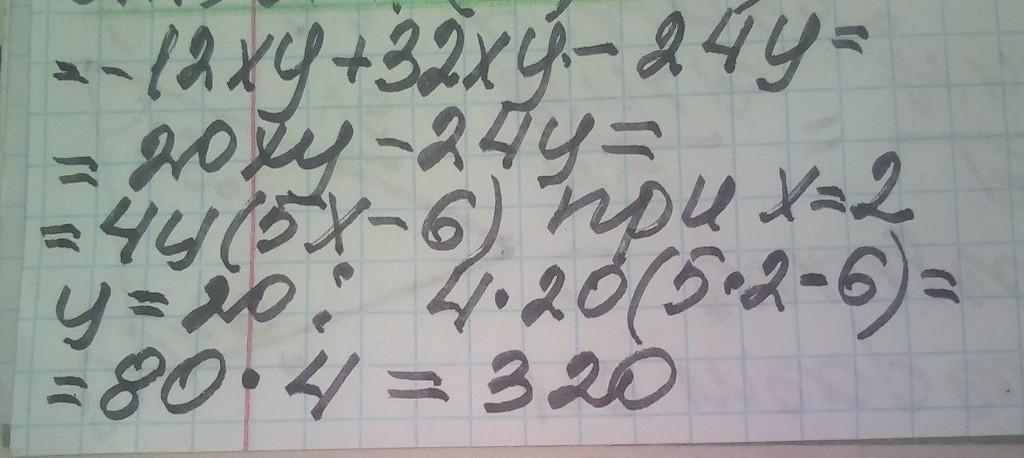 = -12xy + 32xy - 24y =
= 20xy - 24y =
= 4y(5x - 6) при x = 2
y = 20: 4·20(5·2-6) =
= 80·4 = 320